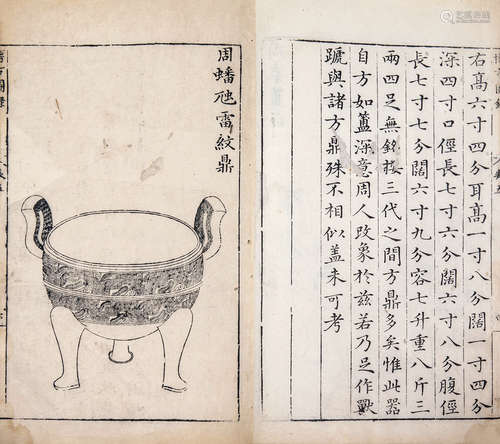 右高六寸四分耳高一寸八分闊一寸四分
深四寸口徑長七寸六分闊六寸八分腹徑
長七寸七分闊六寸九分容七升重八斤三
兩四足無銘按三代之間方鼎多矣惟此器
自方如簠深意周人改象於茲若乃足作獸
蹏與諸方鼎殊不相似蓋未可考
周蟠虺雷紋鼎